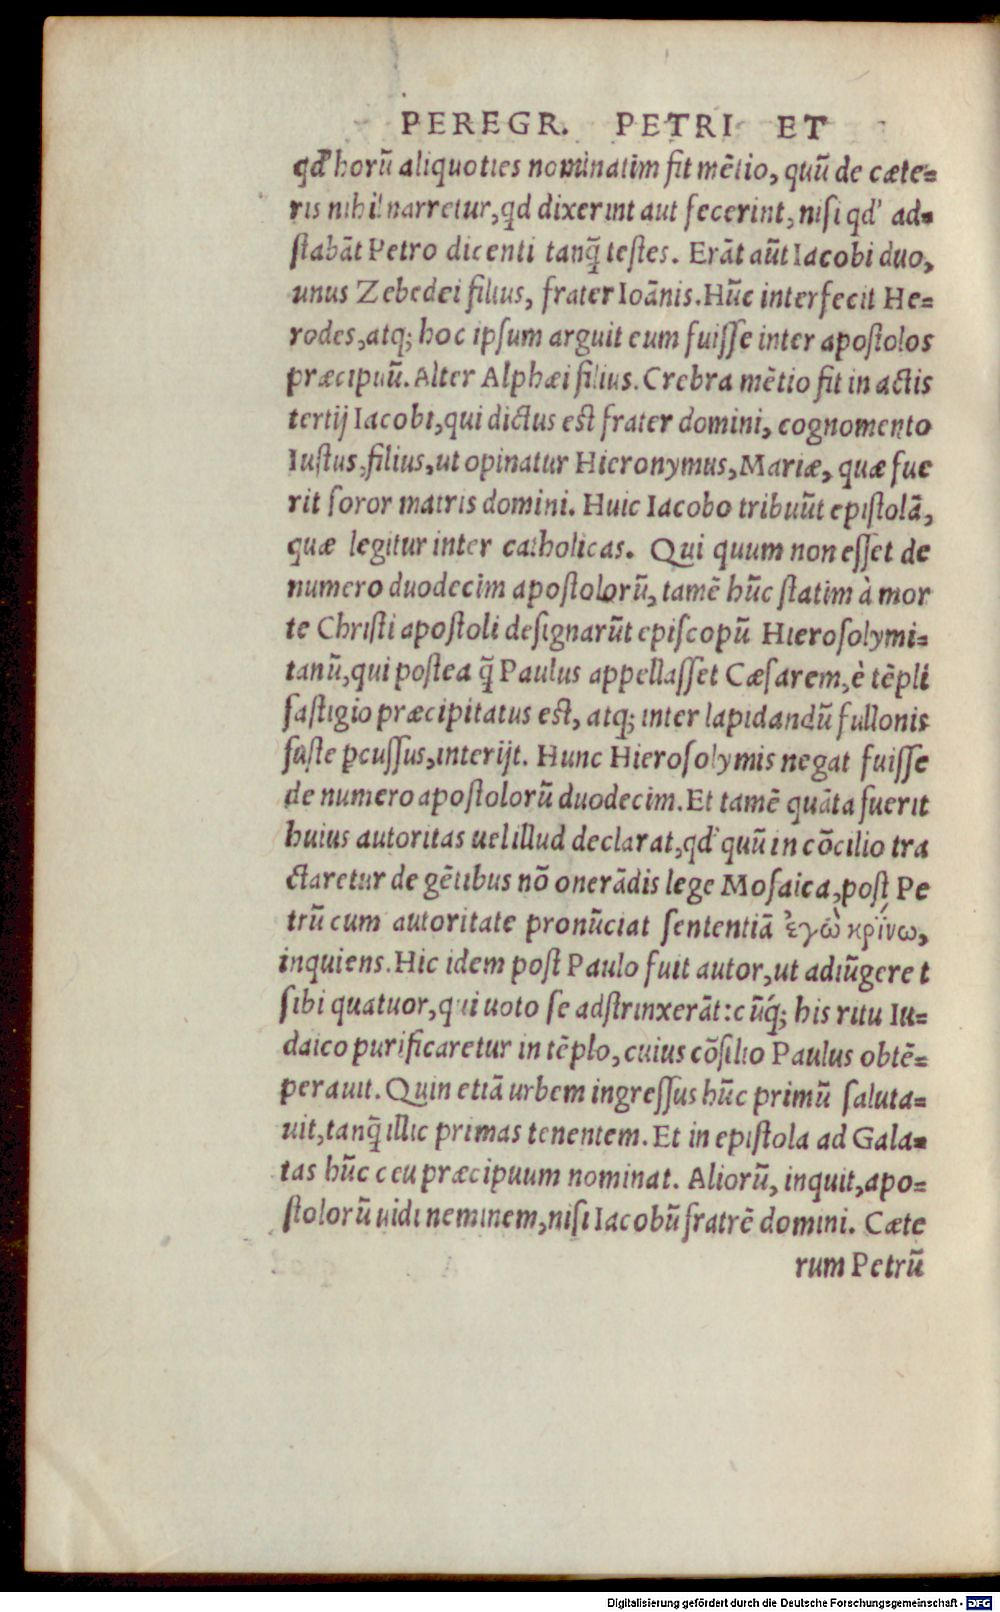 PEREGR. PETRI ET
qd' horū aliquoties nominatim fit mētio, quū de cæte=
ris nihil narretur, qd dixerint aut fecerint, nisi qd' ad=
stabāt Petro dicenti tanq̄ testes. Erāt aūt Iacobi duo,
unus Zebedei filius, frater Ioānis. Hūc interfecit He=
rodes, atq; hoc ipsum arguit eum fuisse inter apostolos
præcipuū. Alter Alphæi filius. Crebra mētio fit in actis
tertij Iacobi, qui dictus est frater domini, cognomento
Iustus, filius, ut opinatur Hieronymus, Mariæ, quæ fue
rit soror matris domini. Huic Iacobo tribuūt epistolā,
quæ legitur inter catholicas. Qui quum non esset de
numero duodecim apostolorū, tamē hūc statim à mor
te Christi apostoli designarūt episcopū Hierosolymi=
tanū, qui postea q̄ Paulus appellasset Cæsarem, è tēpli
fastigio præcipitatus est, atq; inter lapidandū fullonis
fuste ꝑcussus, interijt. Hunc Hierosolymis negat fuisse
de numero apostolorū duodecim. Et tamē quāta fuerit
huius autoritas uel illud declarat, qd' quū in cōcilio tra
ctaretur de gētibus nō onerādis lege Mosaica, post Pe
trū cum autoritate pronūciat sententiā ἐγὼ κρίνω,
inquiens. Hic idem post Paulo fuit autor, ut adiūgeret
sibi quatuor, qui uoto se adstrinxerāt: cūq́; his ritu Iu=
daico purificaretur in tēplo, cuius cōsilio Paulus obtē=
perauit. Quin etiā urbem ingressus hūc primū saluta=
uit, tanq̄ illic primas tenentem. Et in epistola ad Gala=
tas hūc ceu præcipuum nominat. Aliorū, inquit, apo=
stolorū uidi neminem, nisi Iacobū fratrē domini. Cæte
rum Petrū
Digitalisierung gefördert durch die Deutsche Forschungsgemeinschaft - DFG